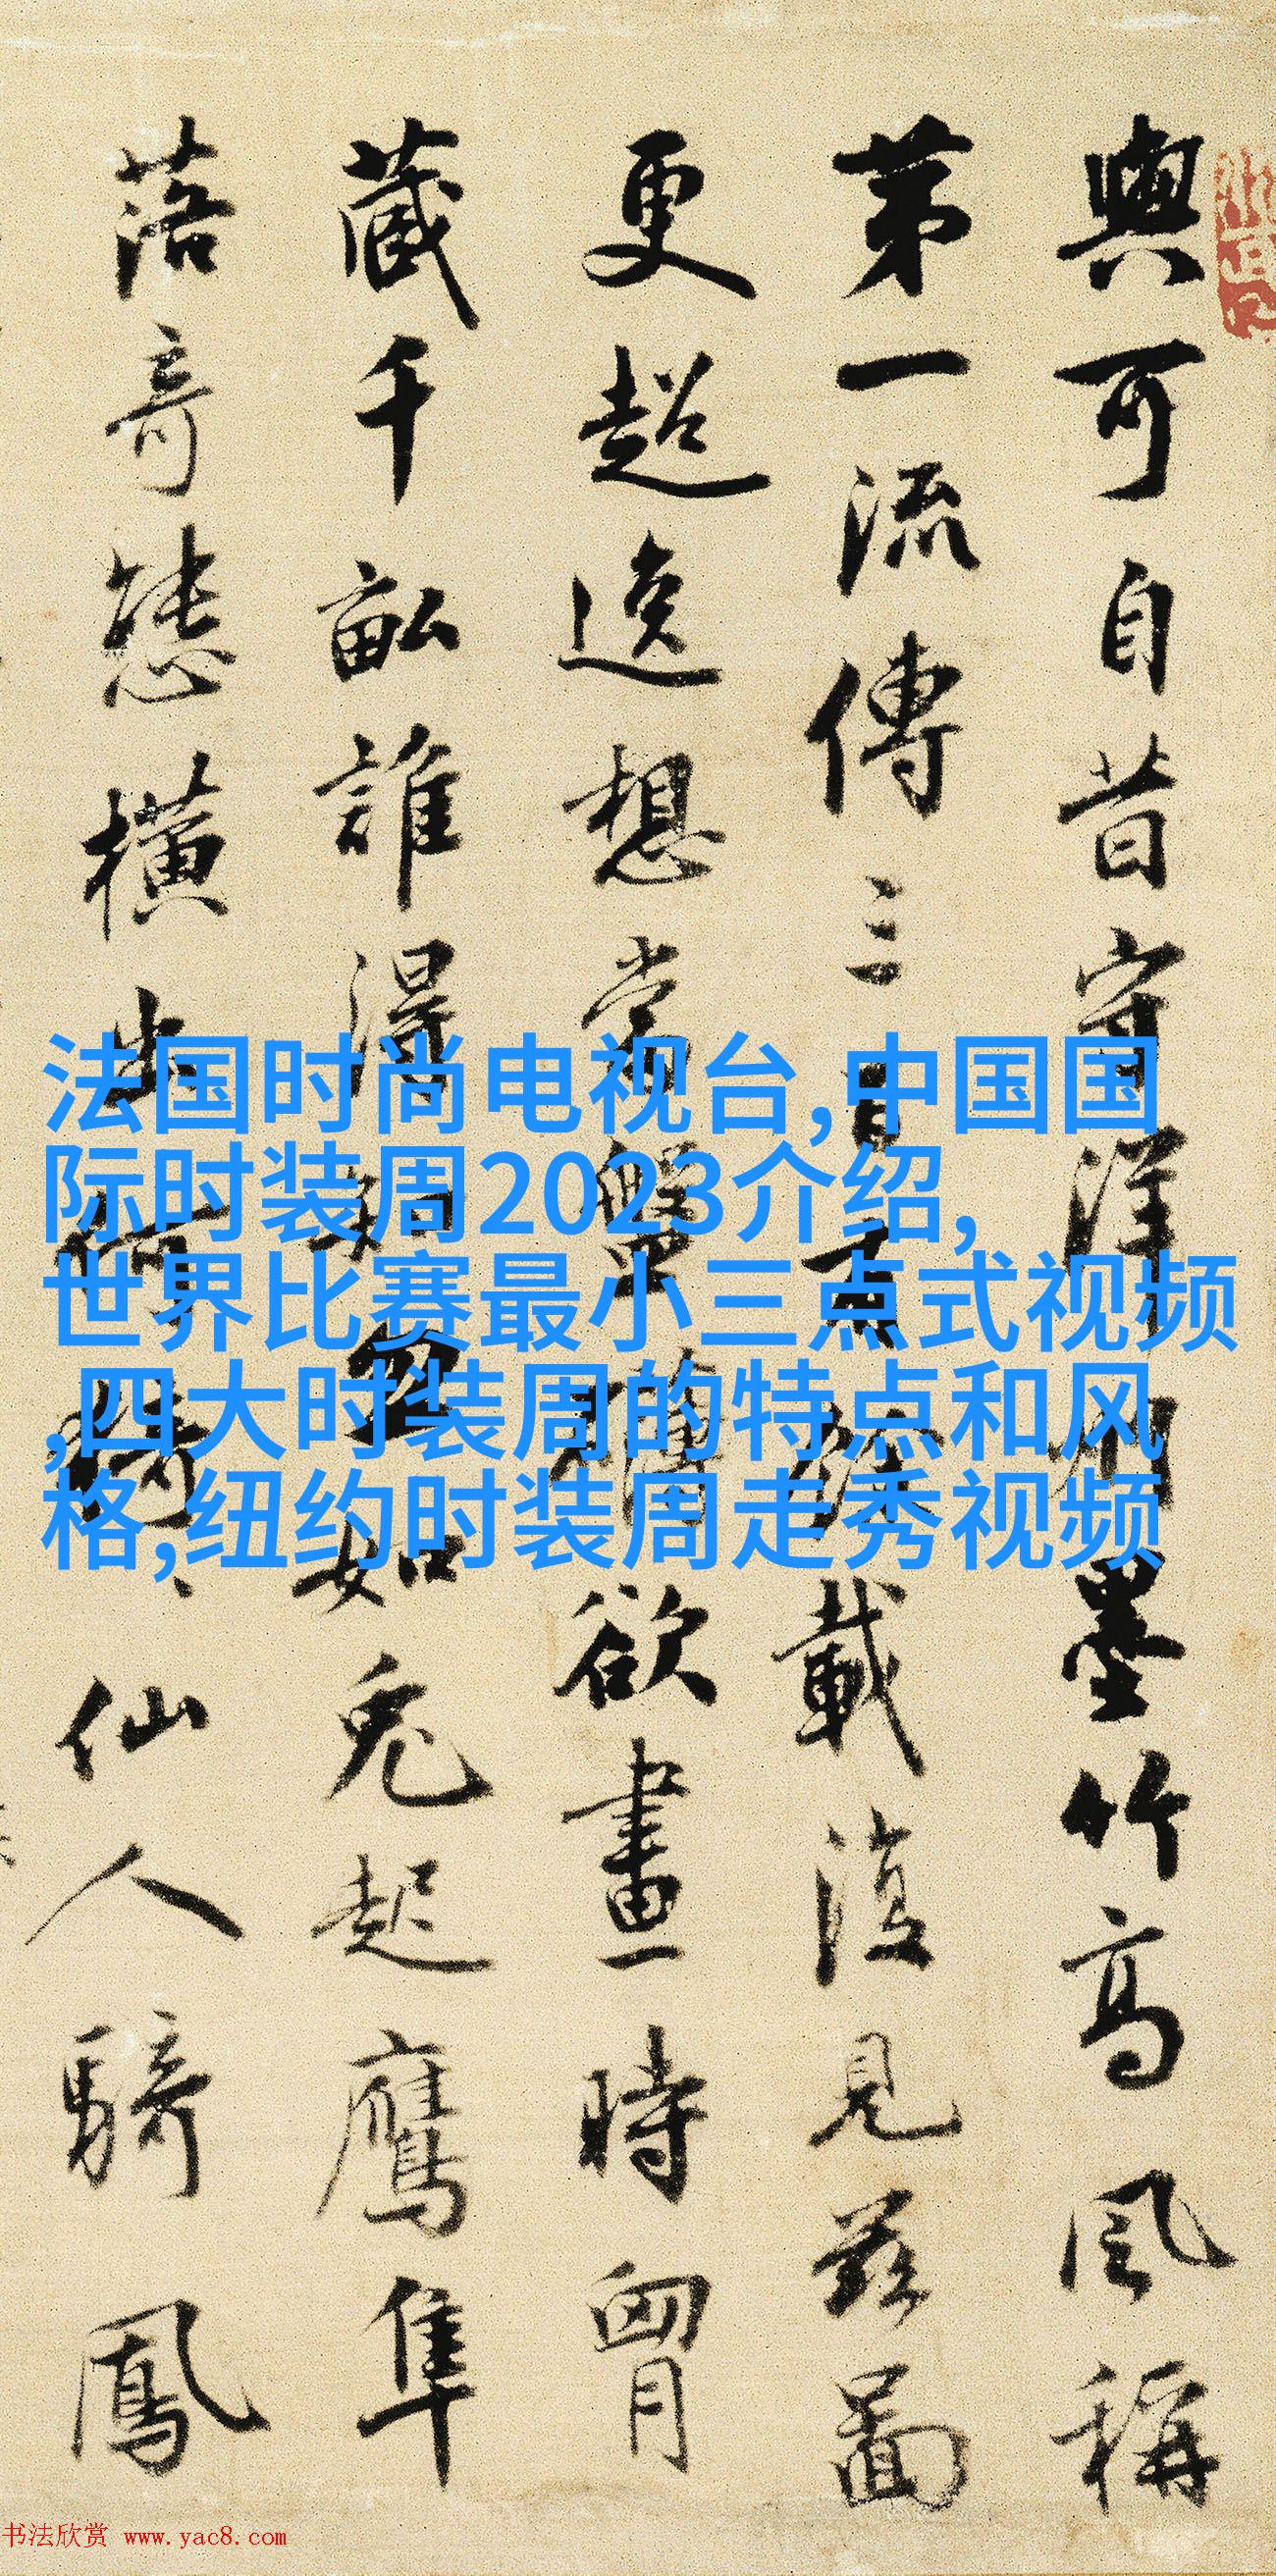 與可自昔守洋州墨竹高風稱
第一流傳三百餘載復見茲圖
更超逸想當盤礴欲畫時胷
藏千畝誰得知忽如兔起鷹隼
落奇態橫出仙人騎鳳
法国时尚电视台,中国国
际时装周2023介绍,
世界比赛最小三点式视频
,四大时装周的特点和风
格,纽约时装周走秀视频
书法欣赏 www.yac8.com